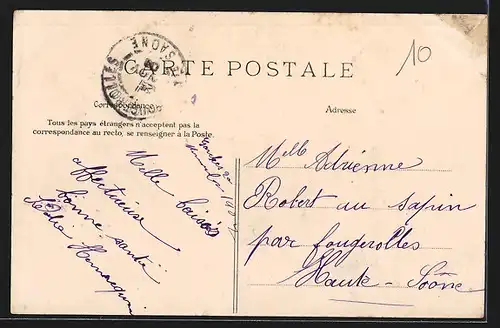 10
FOUGEROLLES
Hte SAONE
CARTE POSTALE
Correspondance
Adresse
Tous les pays étrangers n'acceptent pas la
correspondance au recto, se renseigner à la Poste.
Mille baisers
affectueuse
bonne santé
Melle Adrienne
Robert au sapin
par fougerolles
Haute-Saône